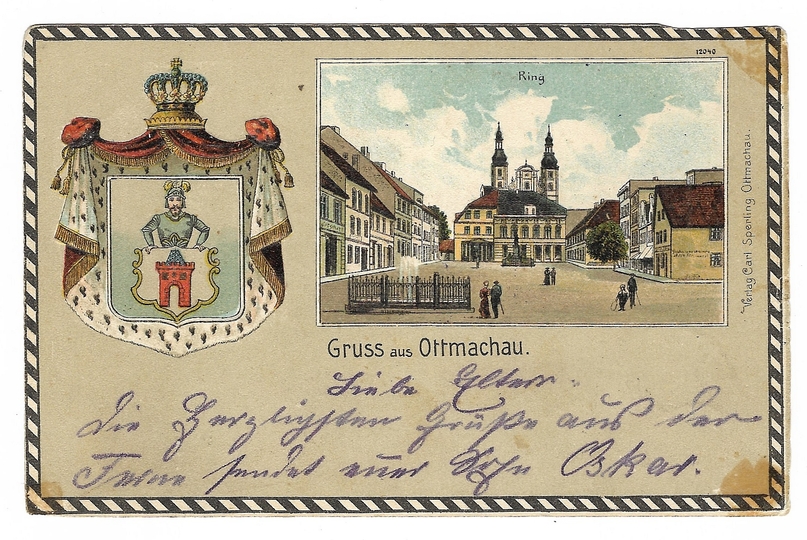 12040
Ring
Verlag Carl Sperling Ottmachau.
Gruss aus Ottmachau.
Liebe Eltern.
Die Herzligsten Grüße aus der
Ferne sendet euer Sohn Oskar.